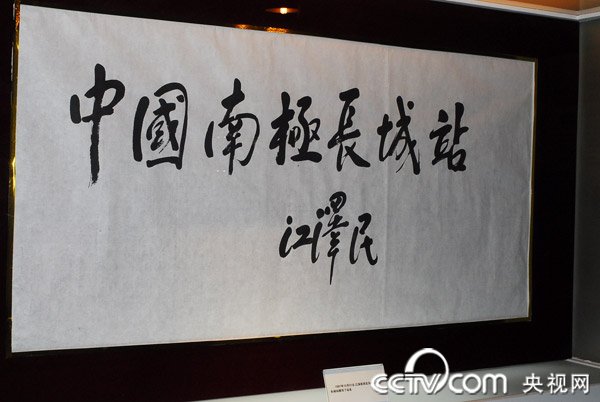 中國南極長城站
江澤民
cctv.com 央视网